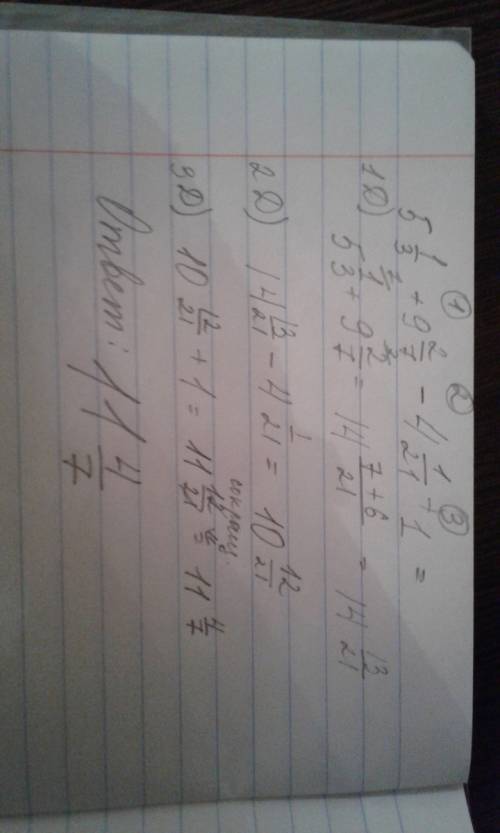 ① ② ③
5 1/3 + 9 2/7 - 4 1/21 + 1 =
1Д) 5 1/3 + 9 2/7 = 14 7+6/21 = 14 13/21
2Д) 14 13/21 - 4 1/21 = 10 12/21
3Д) 10 12/21 + 1 = 11 12/21 = 11 4/7
Ответ: 11 4/7